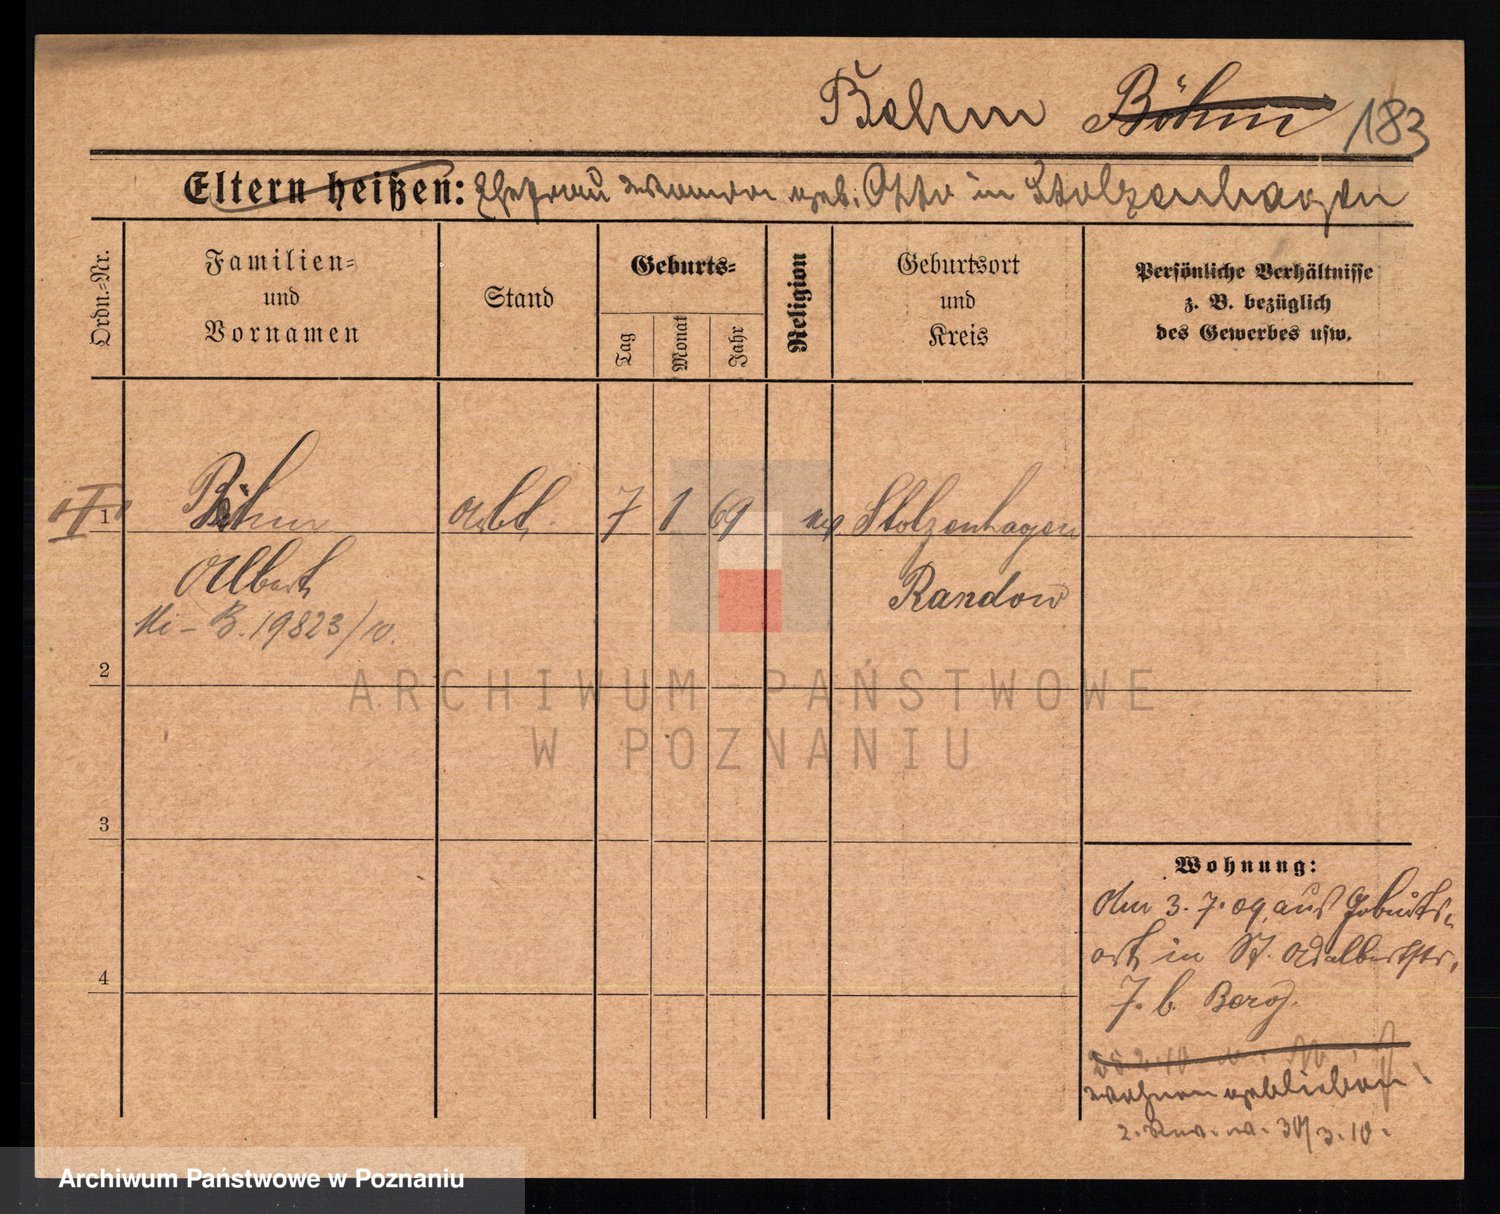 Behm Böhm 183
Eltern heißen: Ehefrau geb. Otto in Stolzenhagen
Ordn.-Nr.
Familien-
und
Vornamen
Stand
Geburts-
Tag
Monat
Jahr
Religion
Geburtsort
und
Kreis
Persönliche Verhältnisse
z. B. bezüglich
des Gewerbes usw.
"I" 1 Böhm Arb. 7 1 69 ev Stolzenhagen
Albert Randow
Mi - B. 19823/10.
2
3
4
Wohnung:
Am 3. 7. 09 aus Geburts-
ort in St. Adalbertstr.
7. b. Berg.
wohnen geblieben
30/3.10.
ARCHIWUM PAŃSTWOWE
W POZNANIU
Archiwum Państwowe w Poznaniu